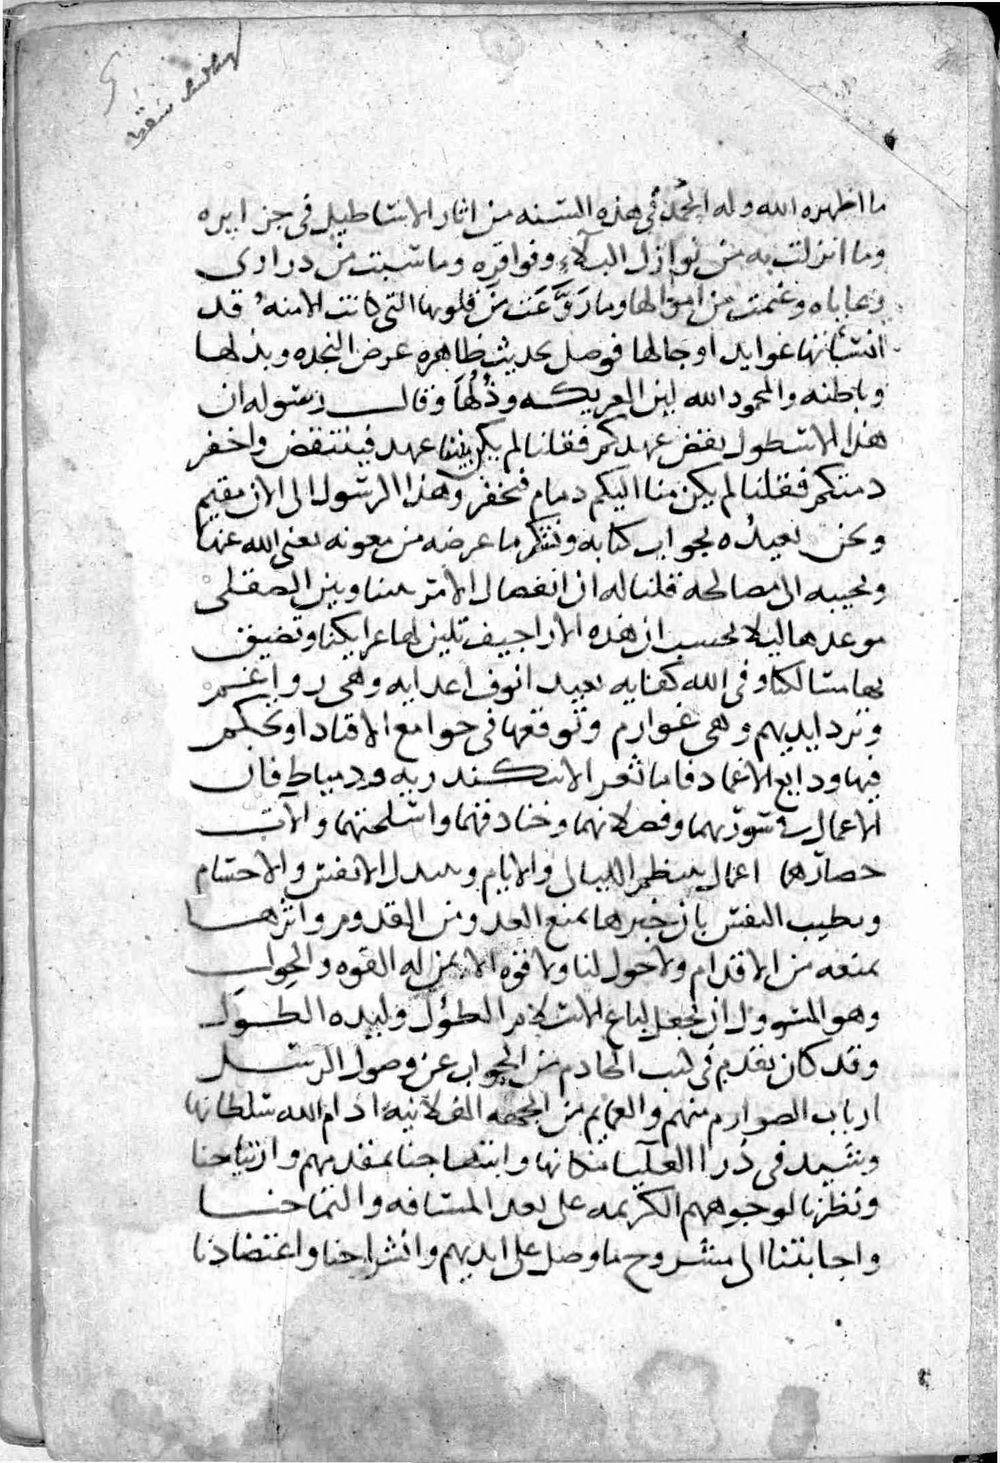 ما اظهره الله وله الحمد فى هذه السنه من اثار الاساطيل فى جزايره
وما انزلت به من نوازل البلاء وفواقره وما سبت من درارى
رعاياه وغنمت من اموالها وما روعت من قلوبها التى كانت الامنه قد
انشاتها غوايد اوجالها فوصل بحديث ظاهره عرض النجده وبذلها
وباطنه والمحمود الله لين العريكه وذلها وقال رسوله ان
هذا الاسطول نقض عهدكم فقلنا لم يكن بيننا عهد فينتقض واخفر
دمتكم فقلنا لم يكن منا اليكم دمام فنخفر وهذا الرسول الى الان مقيم
ونحن نعيده بجواب كتابه ونشكر ما عرضه من معونه يغنى الله عنها
ونجيبه الى مصالحه قلنا له ان انفصال الامر بيننا وبين الصقلى
موعدها ليلا يحسب ان هذه الاراجيف تلين لها عرايكنا وتضيق
بها مسالكنا وفى الله كفايه بعيد انوف اعدايه وهى رواغم
وترد ايديهم وهى غوارم وتوقعها فى جوامع الاقياد او تحكم
فيها ودايع الاغماد فاما ثغر الاسكندريه ودمياط فان
الاعمال فى سوريهما وفصلانهما وخنادقهما واسلحتهما والات
حصارهما اعمال ينتظم الليال والايام ويبذل الانفس والاحتشام
ويطيب النفس بان خبرها يمنع العدو من القدوم واثرها
يمنعه من الاقدام ولا حول لنا ولا قوه الا بمن له القوه والحول
وهو المسوول ان يجعل لباع الاسلام الطول وليده الطول
وقد كان تقدم فى كتب الخادم من الجواب عن وصول الرسل
ارباب الصوارم منهم والعمايم من الجهه الفلانيه ادام الله سلطانها
وشيد فى ذرا العليا مكانها وابتهاجنا بمقدمهم وارتياحنا
ونظرنا لوجوههم الكريمه على بعد المسافه والتماحنا
واجابتنا الى مشروح ما وصل على ايديهم وانشراحنا واعتضادنا